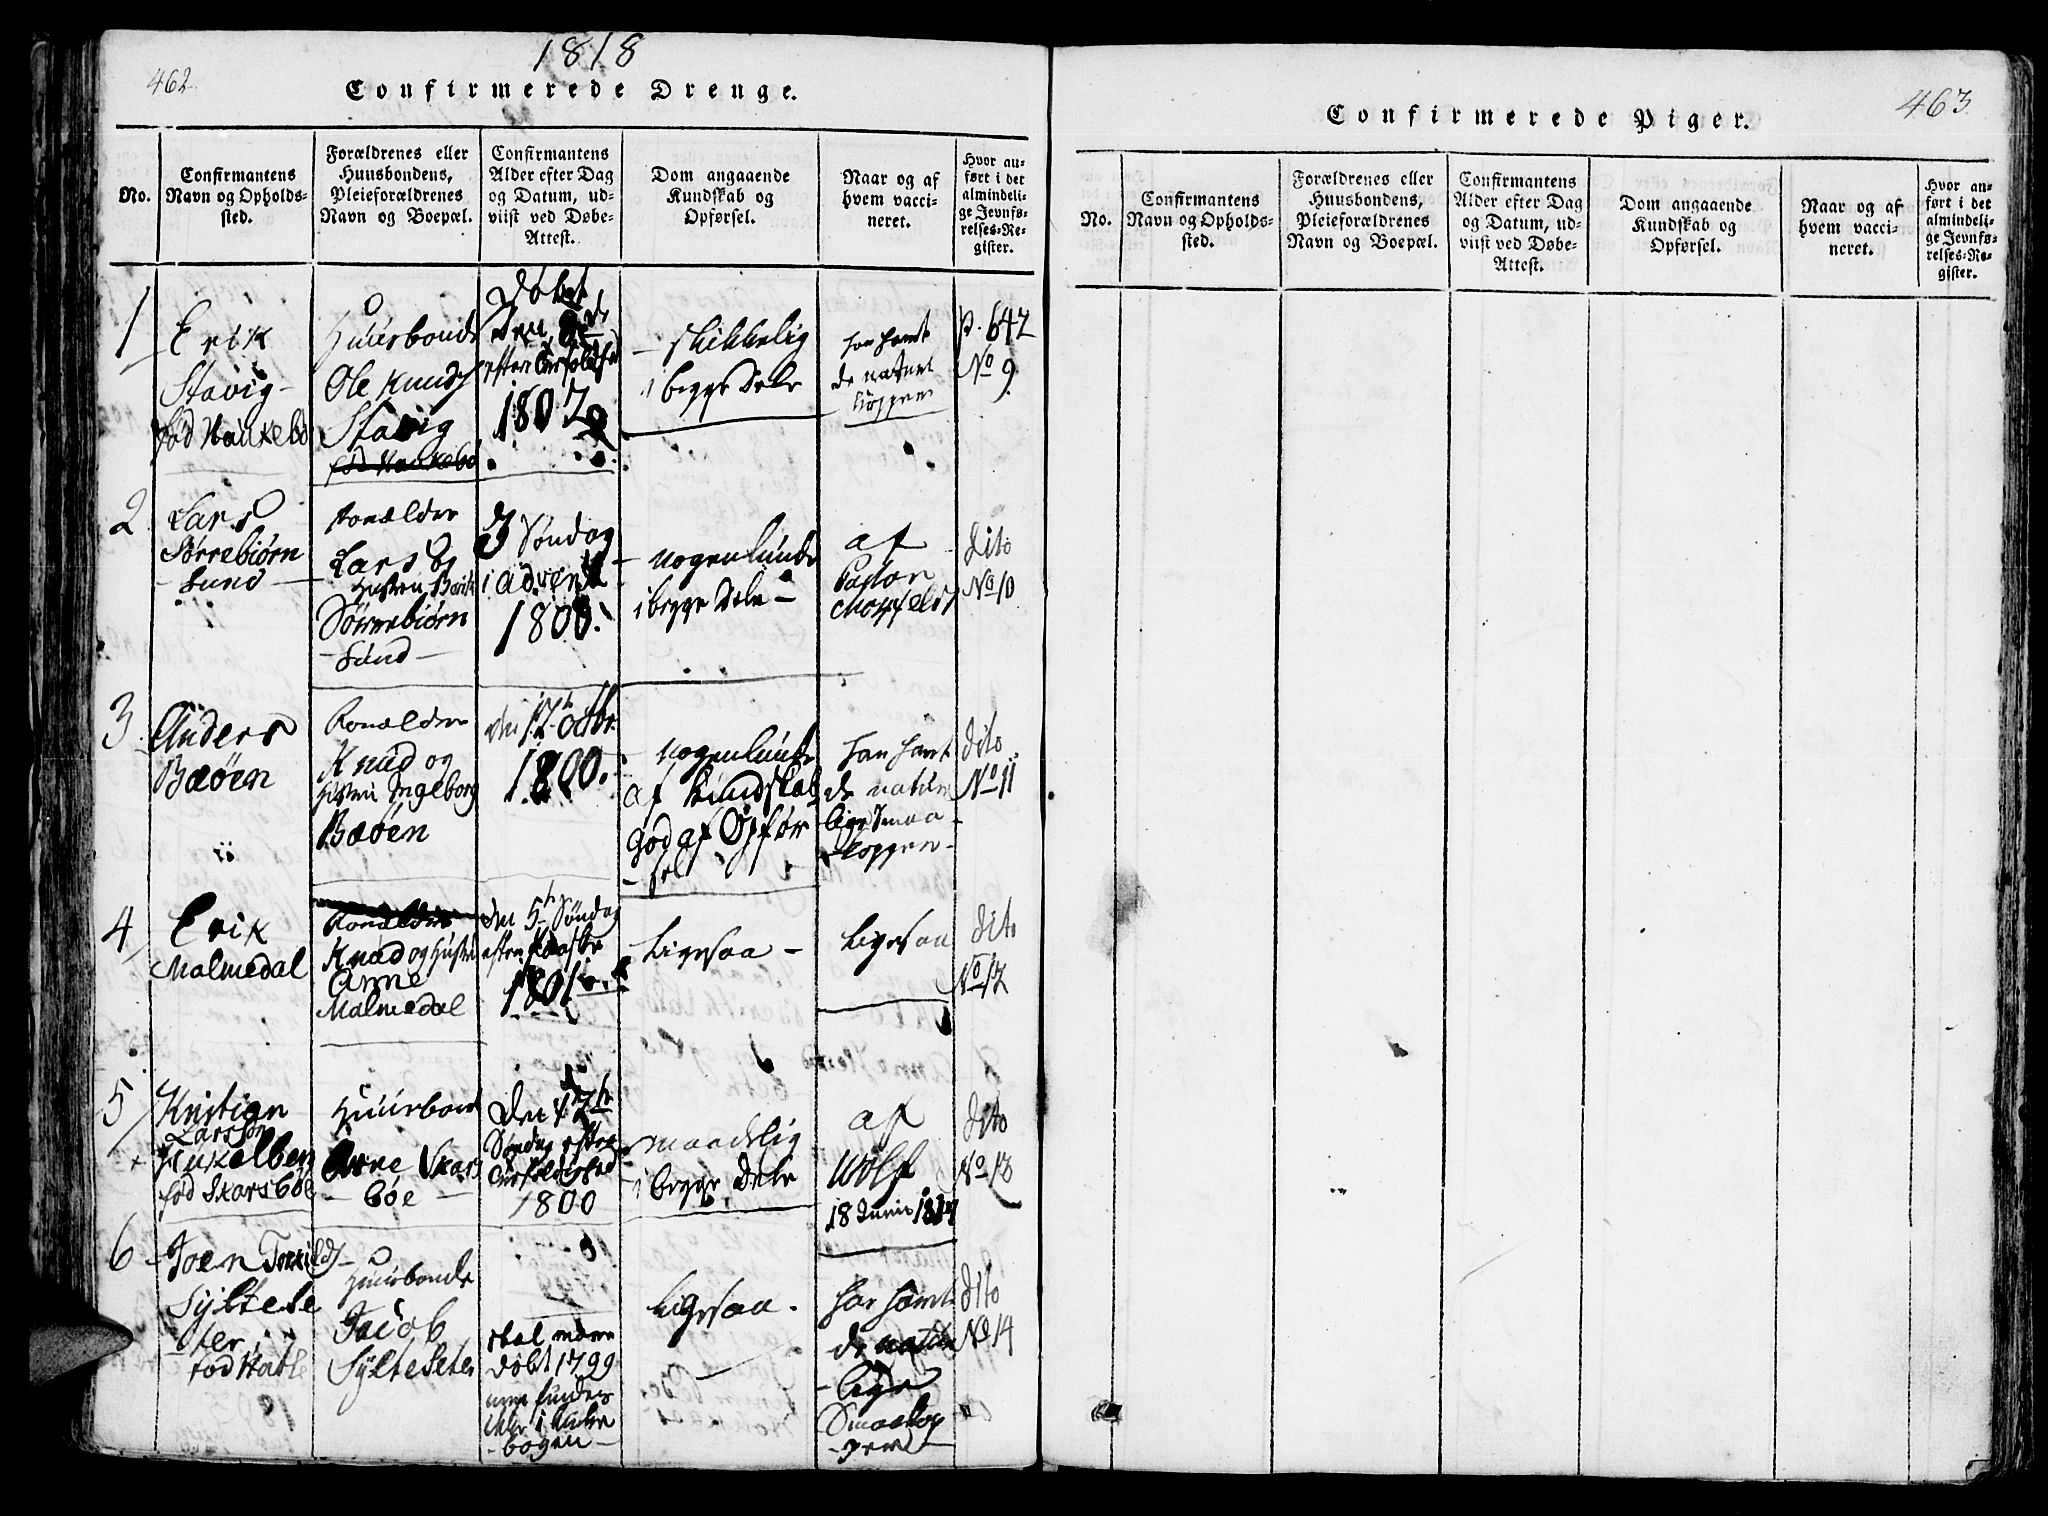 1818
462.
Confirmerede Drenge.
No.
Confirmantens
Navn og Opholds-
sted.
Forældrenes eller
Huusbondens,
Pleieforældrenes
Navn og Boepæl.
Confirmantens
Alder efter Dag
og Datum, ud-
viist ved Døbe-
Attest.
Dom angaaende
Kundskab og
Opførsel.
Naar og af
hvem vacci-
neret.
Hvor an-
ført i det
almindeli-
ge Jevnfø-
relses-Re-
gister.
1
Erik
Stavig
Huusbonde
Ole Knuds
Stavig
Døbt
1802
skikkelig
i begge Dele
har havt
de naturl
kopper
p. 642
No 9.
2.
Lars
Sørrebiørn
Sund
Foreldre
Lars og
Hustru Berit
Sørrebiørn
Sund
3 Søndag
i advent
1800.
nogenlunde
i begge Dele
af
Pastor
dito
No 10
3.
Anders
Bæøen
Foreldre
Knud og
Hustru Ingeborg
Bæøen
den 12t Octbr.
1800.
nogenlunde
af Kundskab
god af Opfør
sel
har havt
de natur
lige Smaa
kopper
dito
No 11
4
Erik
Malmedal
Foreldre
Knud og Hustru
Anne
Malmedal
den 5t Søndag
efter Paaske
1801
Ligesaa
Ligesaa
dito
No 12
5
Kristian
Larsson
født Skarsbøe
Huusbond
Arne Skars
bøe
Søndag efter
1800
maadelig
i begge Dele
af
Wolf
18 Junii
dito
No 13
6
Joen
Sylte Se
ter
Huusbonde
Jacob
Sylte Seter
skal være
døbt 1799
men findes
ikke i Kirke
bogen
Ligesaa.
har havt
de natur
lige
Smaakop
per
dito
No 14
463.
Confirmerede Piger.
No.
Confirmantens
Navn og Opholds-
sted.
Forældrenes eller
Huusbondens,
Pleieforældrenes
Navn og Boepæl.
Confirmantens
Alder efter Dag
og Datum, ud-
viist ved Døbe-
Attest.
Dom angaaende
Kundskab og
Opførsel.
Naar og af
hvem vacci-
neret.
Hvor an-
ført i det
almindeli-
ge Jevnfø-
relses-Re-
gister.